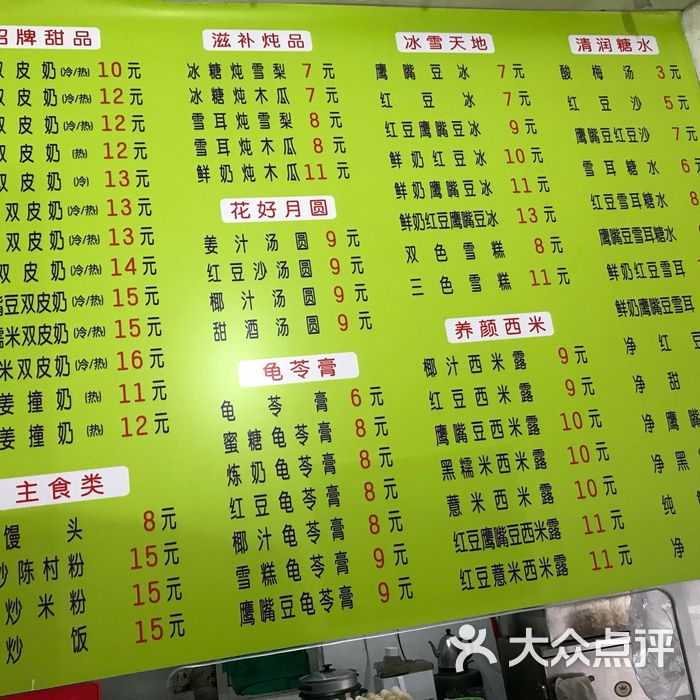 招牌甜品
双皮奶(冷/热) 10元
皮奶(冷/热) 12元
皮奶(冷/热) 12元
皮奶(热) 12元
双皮奶(冷) 13元
双皮奶(冷/热) 13元
双皮奶(冷/热) 13元
双皮奶(冷/热) 14元
豆双皮奶(冷/热) 15元
米双皮奶(冷/热) 15元
米双皮奶(冷/热) 16元
姜撞奶(热) 11元
姜撞奶(热) 12元
主食类
馒头 8元
炒陈村粉 15元
炒米粉 15元
炒饭 15元
滋补炖品
冰糖炖雪梨 7元
冰糖炖木瓜 7元
雪耳炖雪梨 8元
雪耳炖木瓜 8元
鲜奶炖木瓜 11元
花好月圆
姜汁汤圆 9元
红豆沙汤圆 9元
椰汁汤圆 9元
甜酒汤圆 9元
龟苓膏
龟苓膏 6元
蜜糖龟苓膏 8元
炼奶龟苓膏 8元
红豆龟苓膏 8元
椰汁龟苓膏 8元
雪糕龟苓膏 9元
鹰嘴豆龟苓膏 9元
冰雪天地
鹰嘴豆冰 7元
红豆冰 7元
红豆鹰嘴豆冰 9元
鲜奶红豆冰 10元
鲜奶鹰嘴豆冰 11元
鲜奶红豆鹰嘴豆冰 13元
双色雪糕 8元
三色雪糕 11元
养颜西米
椰汁西米露 9元
红豆西米露 9元
鹰嘴豆西米露 10元
黑糯米西米露 10元
薏米西米露 10元
红豆鹰嘴豆西米露 11元
红豆薏米西米露 11元
清润糖水
酸梅汤 3元
红豆沙 5元
鹰嘴豆红豆沙 7元
雪耳糖水 6
红豆雪耳糖水 8
鹰嘴豆雪耳糖水 9
鲜奶红豆雪耳 1
鲜奶鹰嘴豆雪耳
净红豆
净甜
净鹰嘴
净黑
纯
净
大众点评